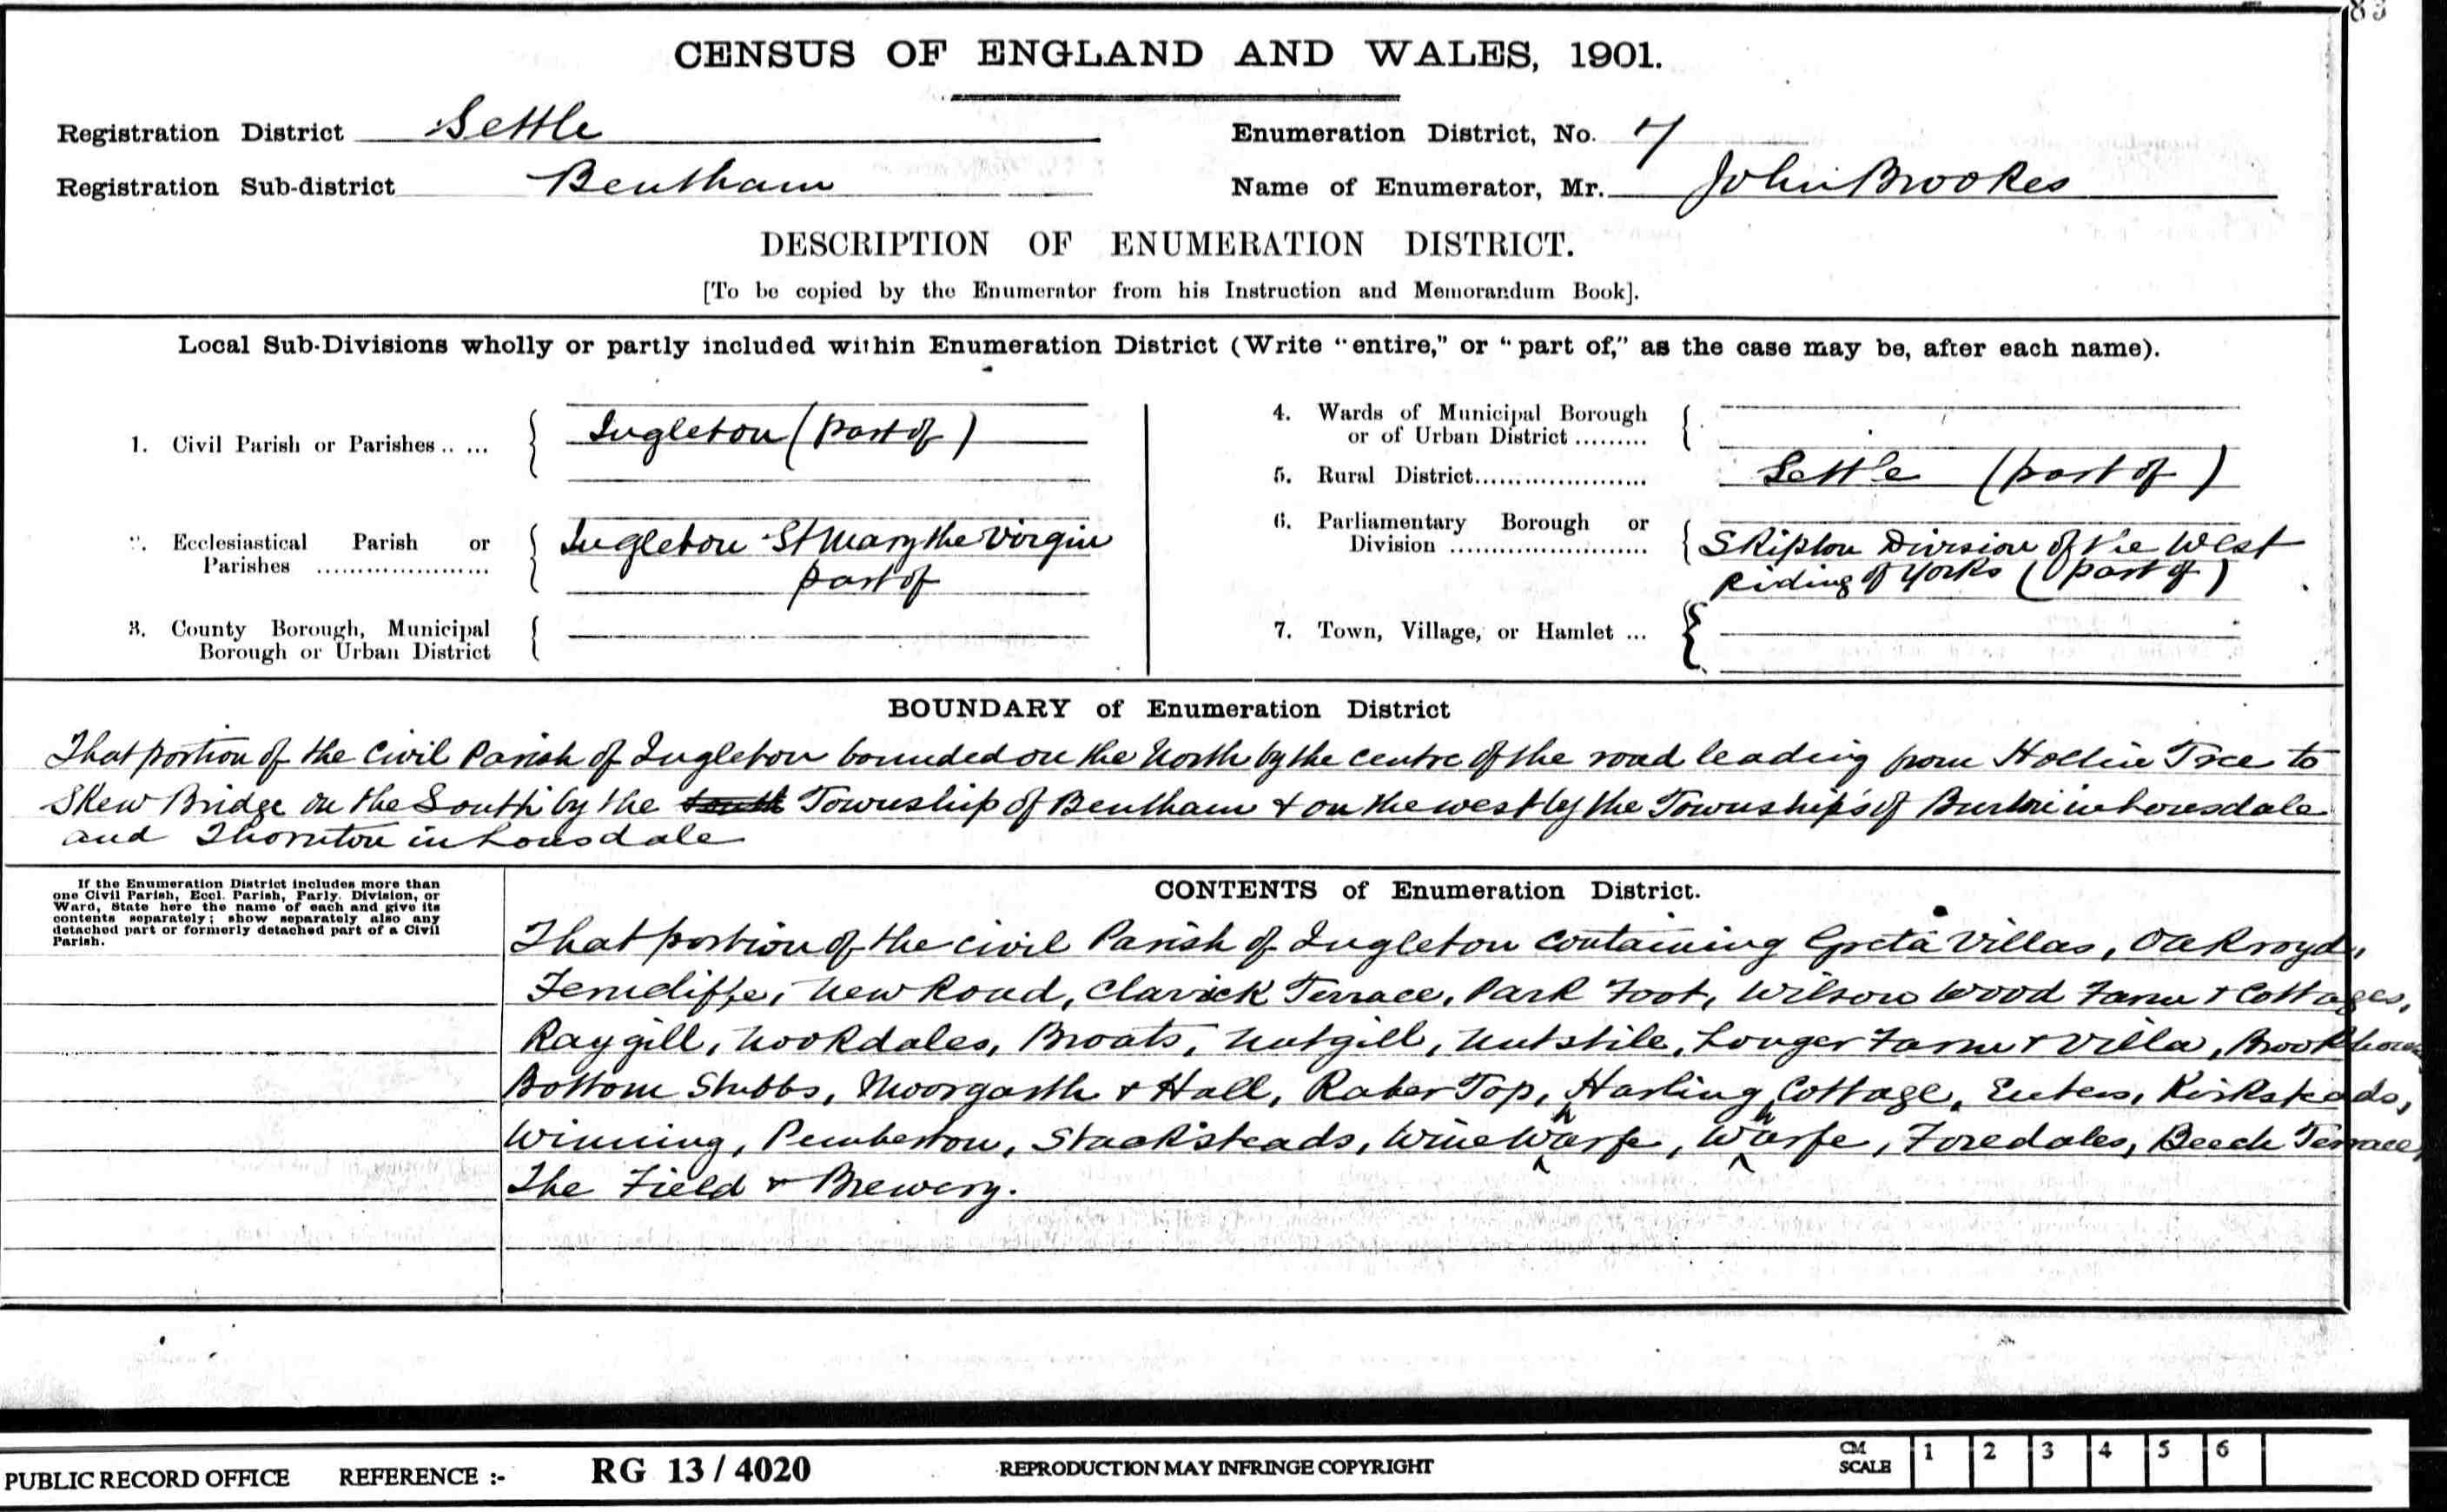 83
CENSUS OF ENGLAND AND WALES, 1901.
Registration District Settle
Enumeration District, No. 7
Registration Sub-district Bentham
Name of Enumerator, Mr. John Brookes
DESCRIPTION OF ENUMERATION DISTRICT.
[To be copied by the Enumerator from his Instruction and Memorandum Book].
Local Sub-Divisions wholly or partly included within Enumeration District (Write "entire," or "part of," as the case may be, after each name).
1. Civil Parish or Parishes .. ...
Ingleton (part of)
Ecclesiastical Parish or
Parishes ....................
Ingleton St Mary the Virgin
part of
3. County Borough, Municipal
Borough or Urban District
4. Wards of Municipal Borough
or of Urban District .........
5. Rural District......................
Settle (part of)
6. Parliamentary Borough or
Division .........................
Skipton Division of the West
Riding of Yorks (part of)
7. Town, Village, or Hamlet ...
BOUNDARY of Enumeration District
That portion of the Civil Parish of Ingleton bounded on the North by the centre of the road leading from Hollin Tree to
Skew Bridge on the South by the Township of Bentham & on the west by the Township's of Burton in Lonsdale
and Thornton in Lonsdale
If the Enumeration District includes more than
one Civil Parish, Eccl. Parish, Parly. Division, or
Ward, State here the name of each and give its
contents separately; show separately also any
detached part or formerly detached part of a Civil
Parish.
CONTENTS of Enumeration District.
That portion of the civil Parish of Ingleton containing Greta Villas, Oakroyd,
Ferncliffe, New Road, Clarick Terrace, Park Foot, Wilson Wood Farm & Cottages,
Raygill, Nookdales, Broats, Nutgill, Nutstile, Longer Farm & Villa, Brookhouse
Bottom Stubbs, Moorgarth & Hall, Raber Top, Harling Cottage, Enters, Kirksteads,
Winning, Pemberton, Stacksteads, Wine Wharfe, Wharfe, Foredales, Beech Terrace,
The Field & Brewery.
PUBLIC RECORD OFFICE REFERENCE :- RG 13 / 4020 REPRODUCTION MAY INFRINGE COPYRIGHT
CM SCALE 1 2 3 4 5 6